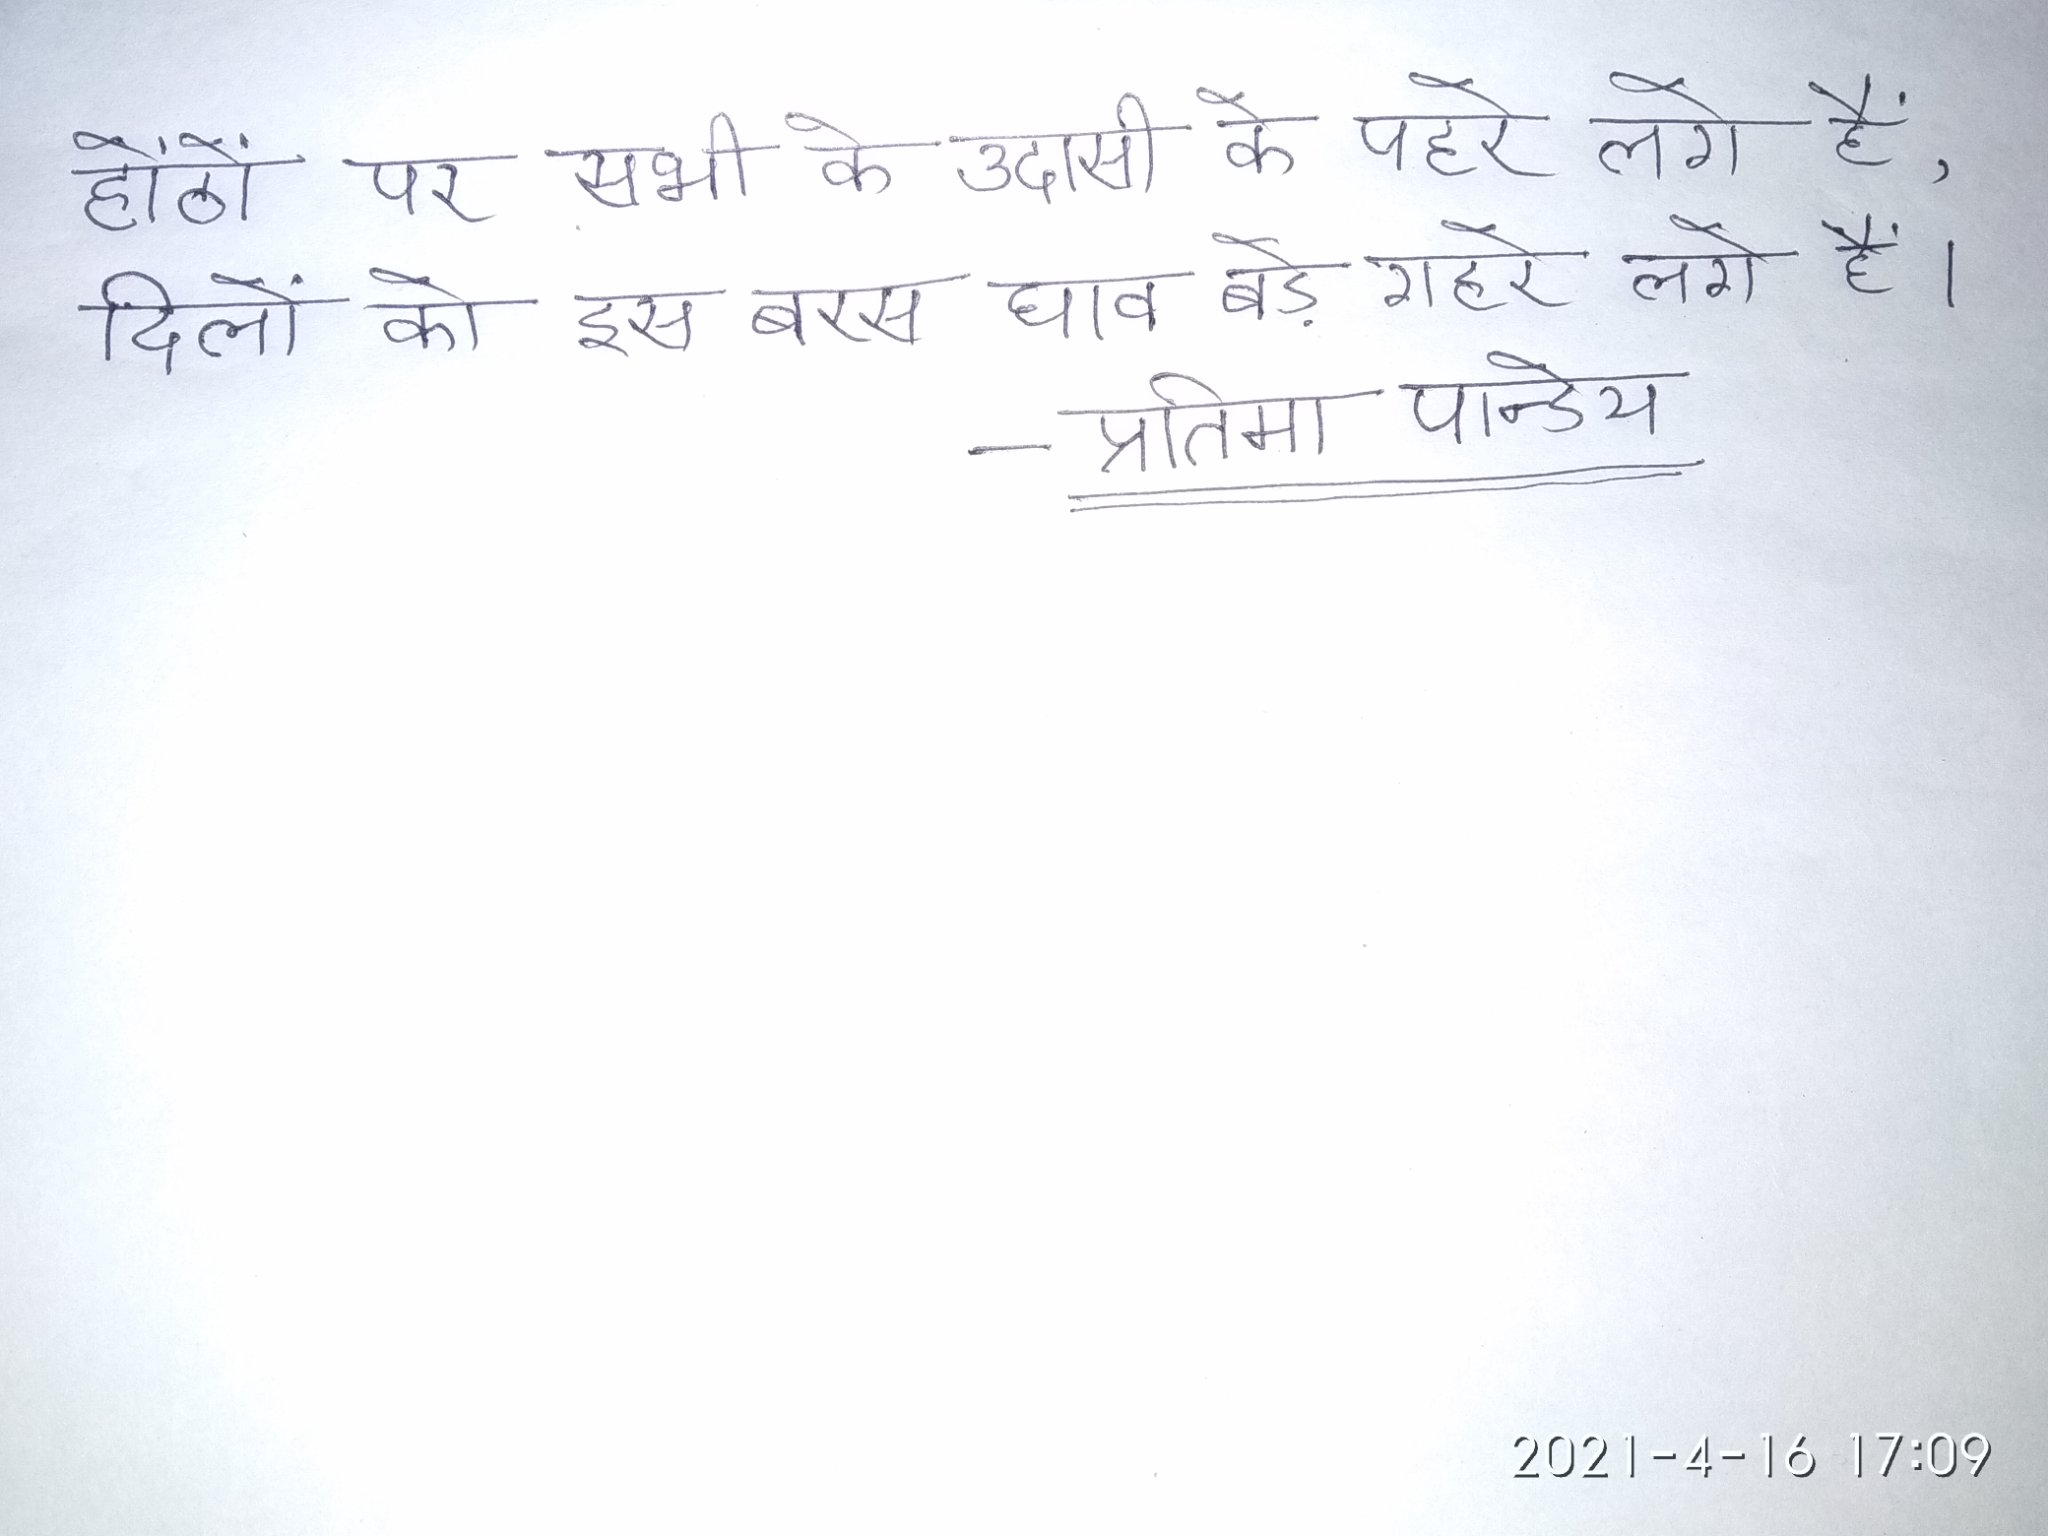 होंठों पर सभी के उदासी के पहरे लगे हैं,
दिलों को इस बरस घाव बड़े गहरे लगे हैं।
– प्रतिमा पान्डेय
2021-4-16 17:09